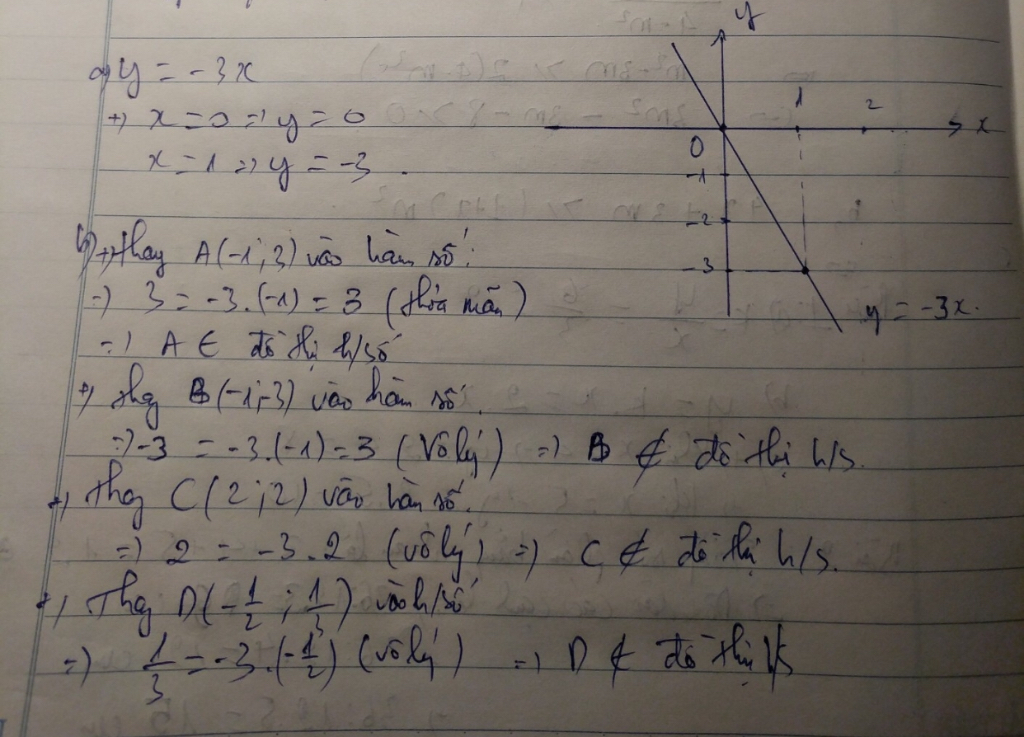 a) y = -3x
+) x = 0 => y = 0
x = 1 => y = -3.
b) +) thay A(-1;3) vào hàm số:
=) 3 = -3.(-1) = 3 (thỏa mãn)
=) A ∈ đồ thị h/số
+) thay B(-1;-3) vào hàm số.
=) -3 = -3.(-1) = 3 (Vô lý) =) B ∉ đồ thị h/s.
+) Thay C(2;2) vào hàm số.
=) 2 = -3.2 (vô lý) =) C ∉ đồ thị h/s.
+) Thay D(-1/2 ; 1/3) vào h/số
=) 1/3 = -3.(-1/2) (vô lý) =) D ∉ đồ thị h/s
y
1 2
x
0
-1
-2
-3
y = -3x.